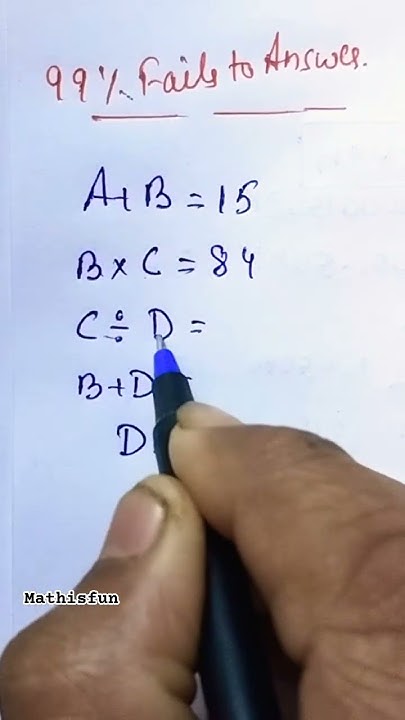 99% Fails to Answer.
A+B=15
B×C=84
C÷D=
B+D
D
Mathisfun